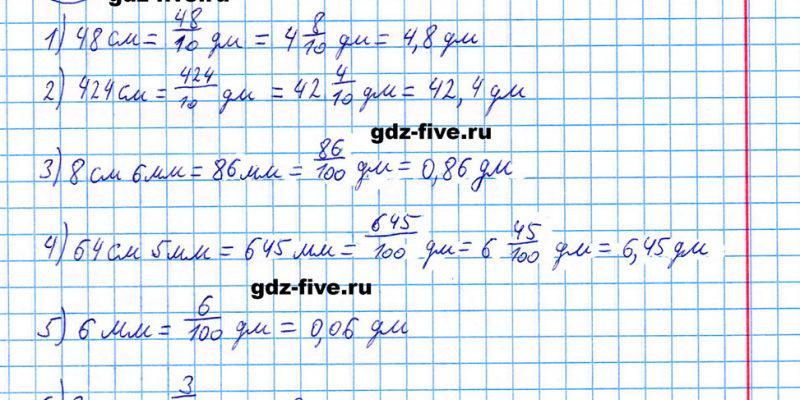 gdz-five.ru
1) 48 см = 48/10 дм = 4 8/10 дм = 4,8 дм
2) 424 см = 424/10 дм = 42 4/10 дм = 42,4 дм
gdz-five.ru
3) 8 см 6 мм = 86 мм = 86/100 дм = 0,86 дм
4) 64 см 5 мм = 645 мм = 645/100 дм = 6 45/100 дм = 6,45 дм
gdz-five.ru
5) 6 мм = 6/100 дм = 0,06 дм
3